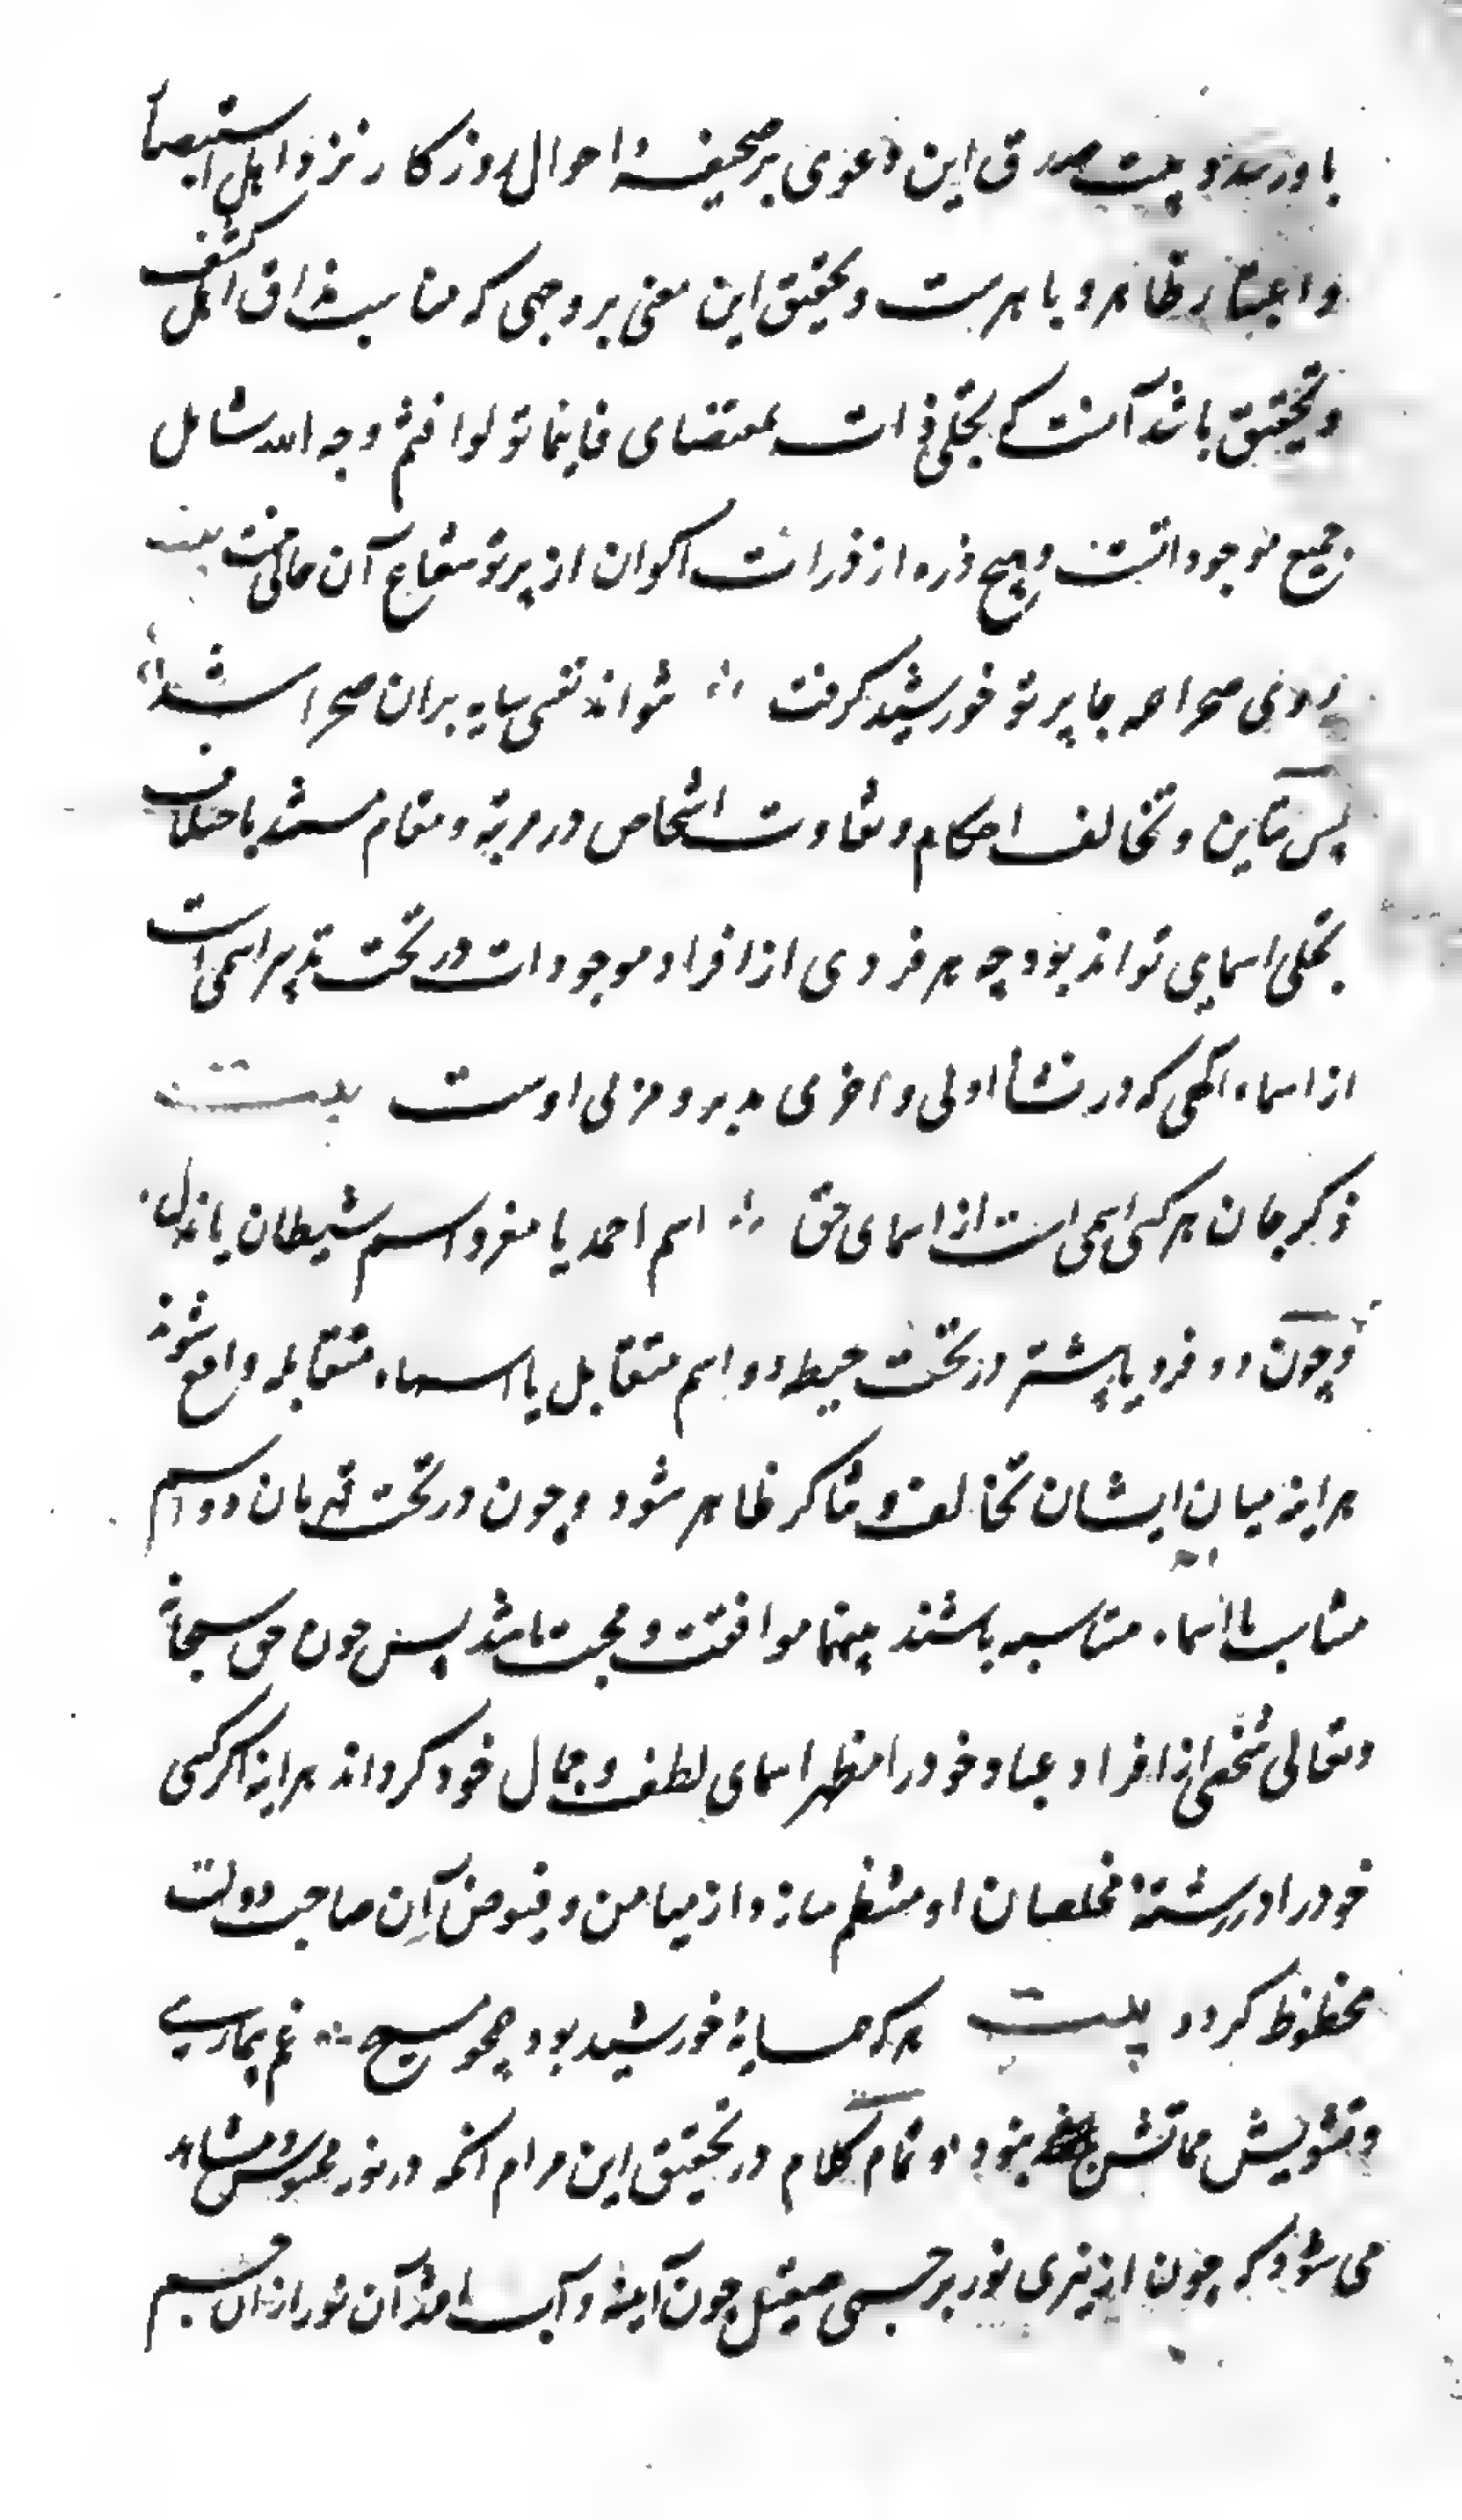 باورند و بینت صدق این دعوی بر صحیفهٔ احوال روزکار نزد اهل استبصار
و اعتبار ظاهر و باهرست و تحقیق این معنی بر وجهی که مناسب مذاق اهل کشف
و تحقیق باشد آنست که تجلی ذات بمقتضای فاینما تولوا فثم وجه الله شامل
جمیع موجوداتست و هیچ ذره از ذرات اکوان از پرتو شعاع آن خالی نیست بیت
روی صحرا همه جا پرتو خورشید کرفت نتواند نفسی سایه بران صحرا شد
پس تباین و تخالف احکام و تفاوت اشخاص در مرتبه و مقام مستند باختلاف
تجلی اسمایی تواند بود چه هر فردی از افراد موجودات در تحت تدبیر اسمی است
از اسماء الهی که در نشأ اولی و اخری مدبر و مربی اوست بیت
ذکر جان هر کسی اسمی است از اسمای حق اسم احمد یا معز و اسم شیطان یا مذل
و چون دو فرد یا بیشتر در تحت حیطه دو اسم متقابل یا اسماء متقابله واقع شوند
هراینه میان ایشان تخالف و تناکر ظاهر شود و چون در تحت قهرمان دو اسم
متناسب یا اسماء متناسبه باشند بینهما موافقت و محبت باشد پس چون حق سبحانه
وتعالی شخصی از افراد عباد خود را مظهر اسمای لطف و جمال خود کرداند هراینه اکر کسی
خود را در رشتهٔ مخلصان او منتظم سازد از میامن و فیوض آن صاحب دولت
محظوظ کردد بیت هر که همسایهٔ خورشید بود همچو مسیح غم بیماری
و تشویش مماتش نبود و تمام کلام در تحقیق این مرام انکه در نور محسوس مشاهد
می شود که چون از نیری نور بر جسمی صیقل چون آینه و آب افتد آن نور از ان جسم